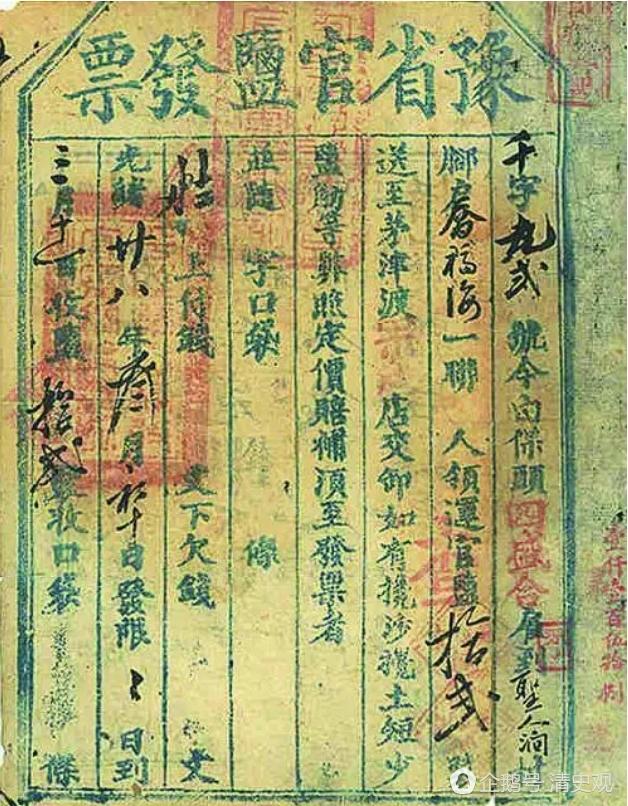 豫省官鹽發票
千字 號今向保頭四盛合雇到聖人澗
腳 福海一聯 人領運官鹽拾弍
送至茅津渡 店交卸如有攙沙攙土短少
鹽觔等弊照定價賠補須至發票者
並隨 字口袋 條
上付錢 文下欠錢 文
光緒廿八年叁月 日發限 日到
三月十一日收鹽拾弍 收口袋 條
壹仟 百伍拾捌
企鹅号 清史观